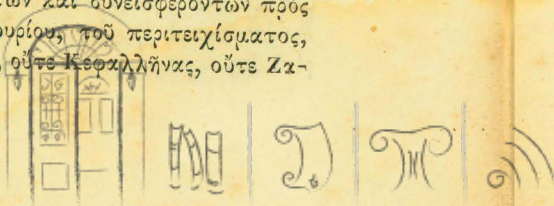 καὶ συνεισφερόντων πρὸς
τοῦ περιτειχίσματος,
οὔτε Κεφαλλῆνας, οὔτε Ζα-